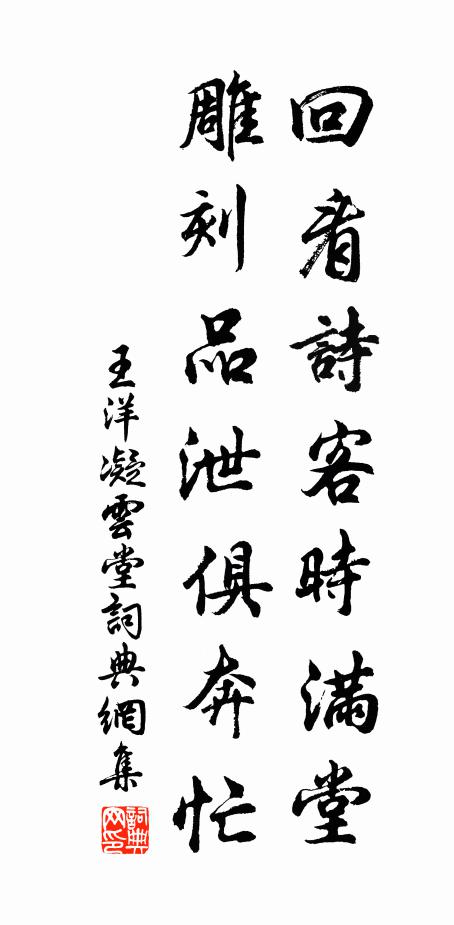 回看詩客時滿堂
雕刻品泄俱奔忙
王洋凝雲堂詞典網集
詞典网印